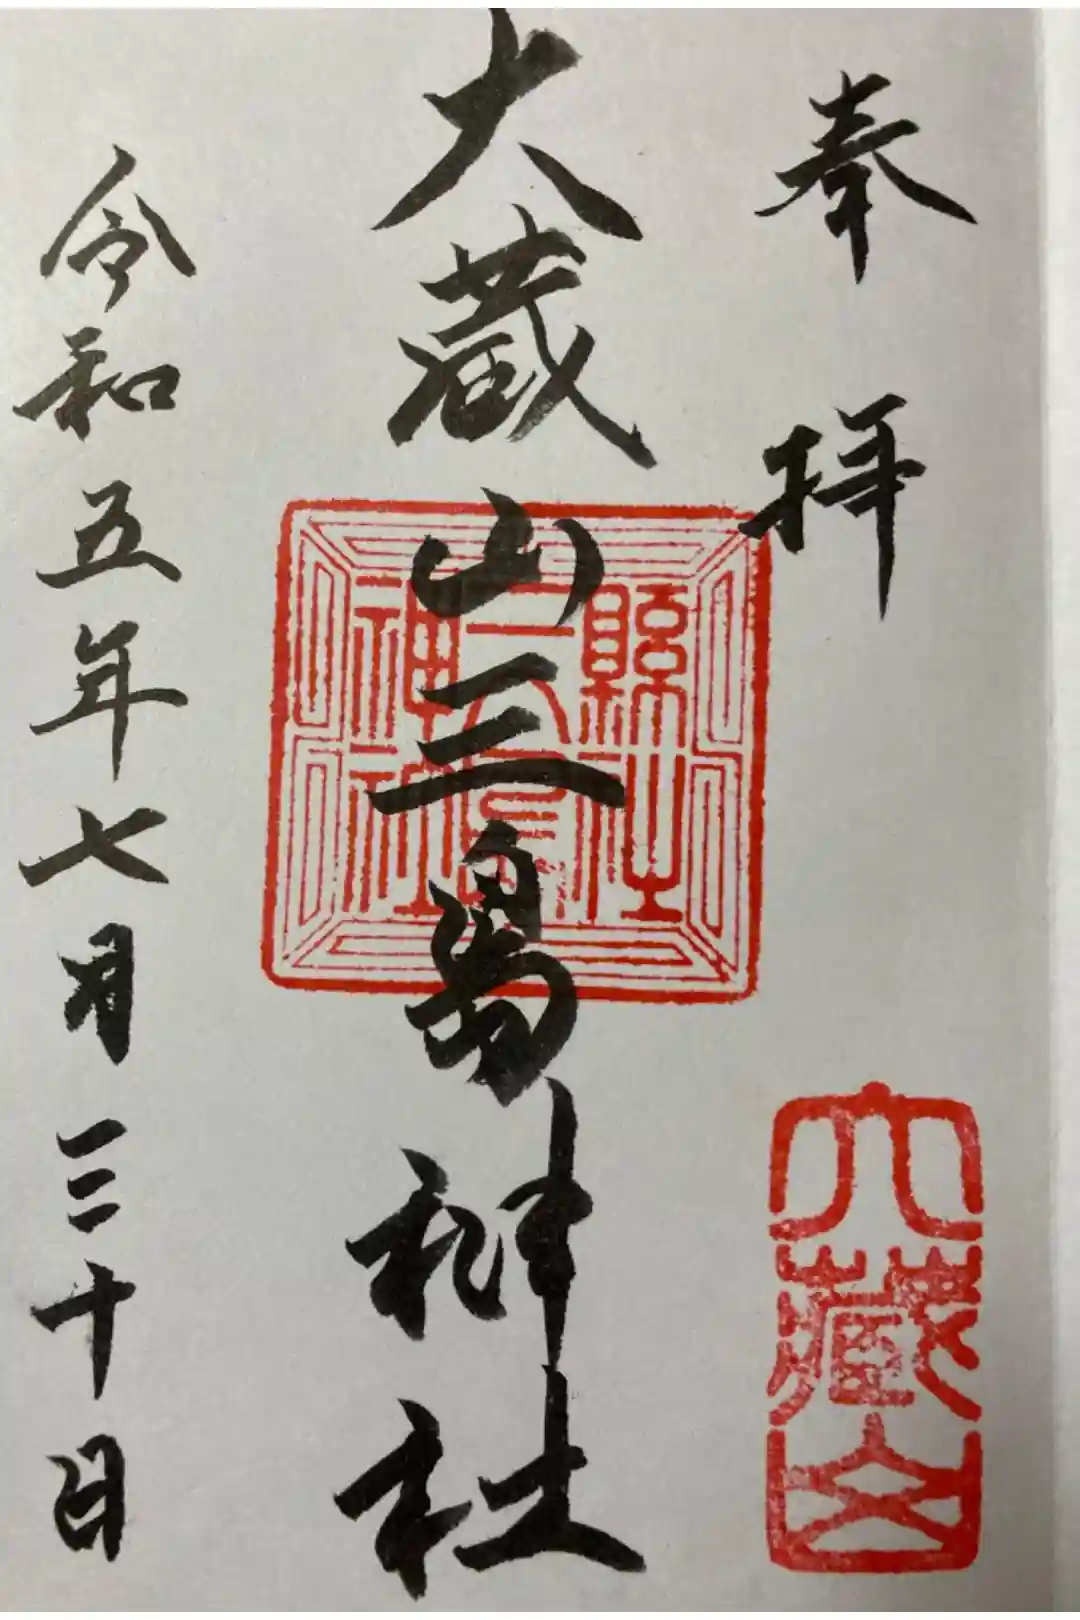 奉拝
大蔵山
大蔵山三島神社
縣社
三島
神社
令和五年七月三十日